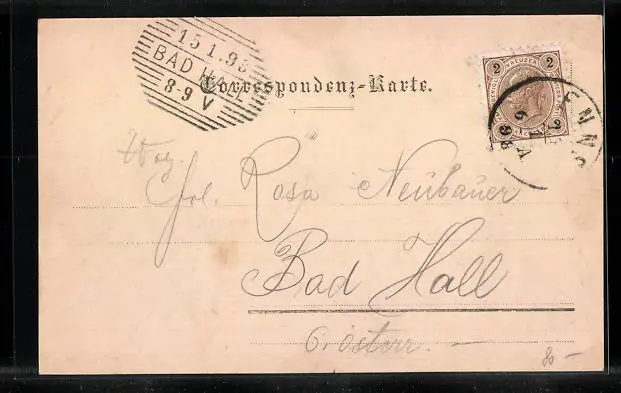 15 1 98
BAD HALL
8-9 V
Correspondenz-Karte.
2 KREUZER 2
2 2
ENNS
Frl. Rosa Neubauer
Bad Hall
O. österr.
80 –